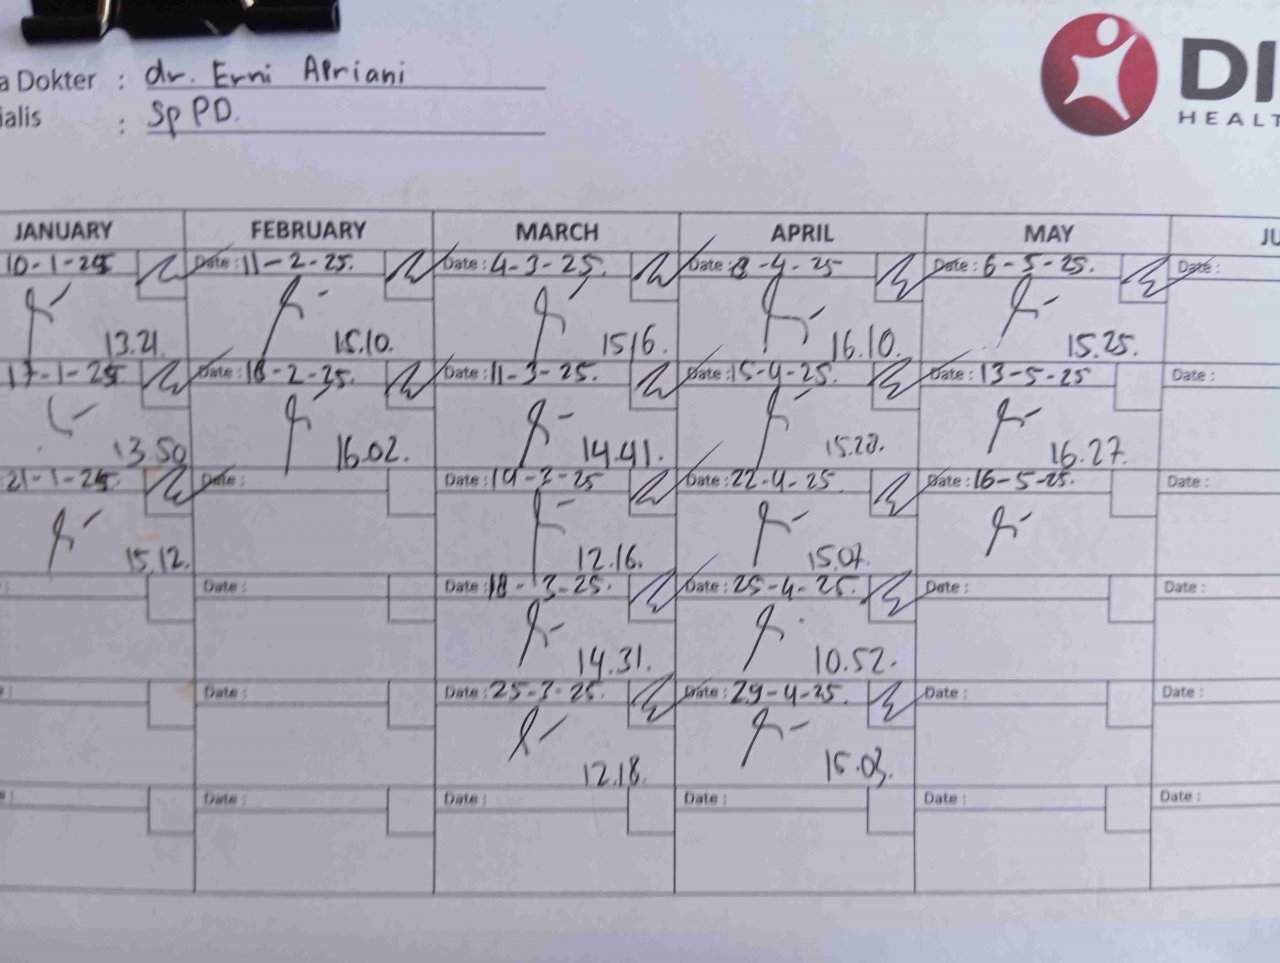 a Dokter : dr. Erni Apriani
ialis : Sp PD.
DI
HEALT
JANUARY FEBRUARY MARCH APRIL MAY JU
10-1-25 Date : 11-2-25. Date : 4-3-25. Date : 8-4-25 Date : 6-5-25. Date :
13.21. 15.10. 15.16. 16.10. 15.25.
17-1-25 Date : 18-2-25. Date : 11-3-25. Date : 15-4-25. Date : 13-5-25 Date :
13.50 16.02. 14.41. 15.20. 16.27.
21-1-25. Date : Date : 14-3-25 Date : 22-4-25. Date : 16-5-25. Date :
15.12. 12.16. 15.07.
: Date : Date : 18-3-25. Date : 25-4-25. Date : Date :
14.31. 10.52.
: Date : Date : 25-3-25. Date : 29-4-25. Date : Date :
12.18. 15.03.
: Date : Date : Date : Date : Date :